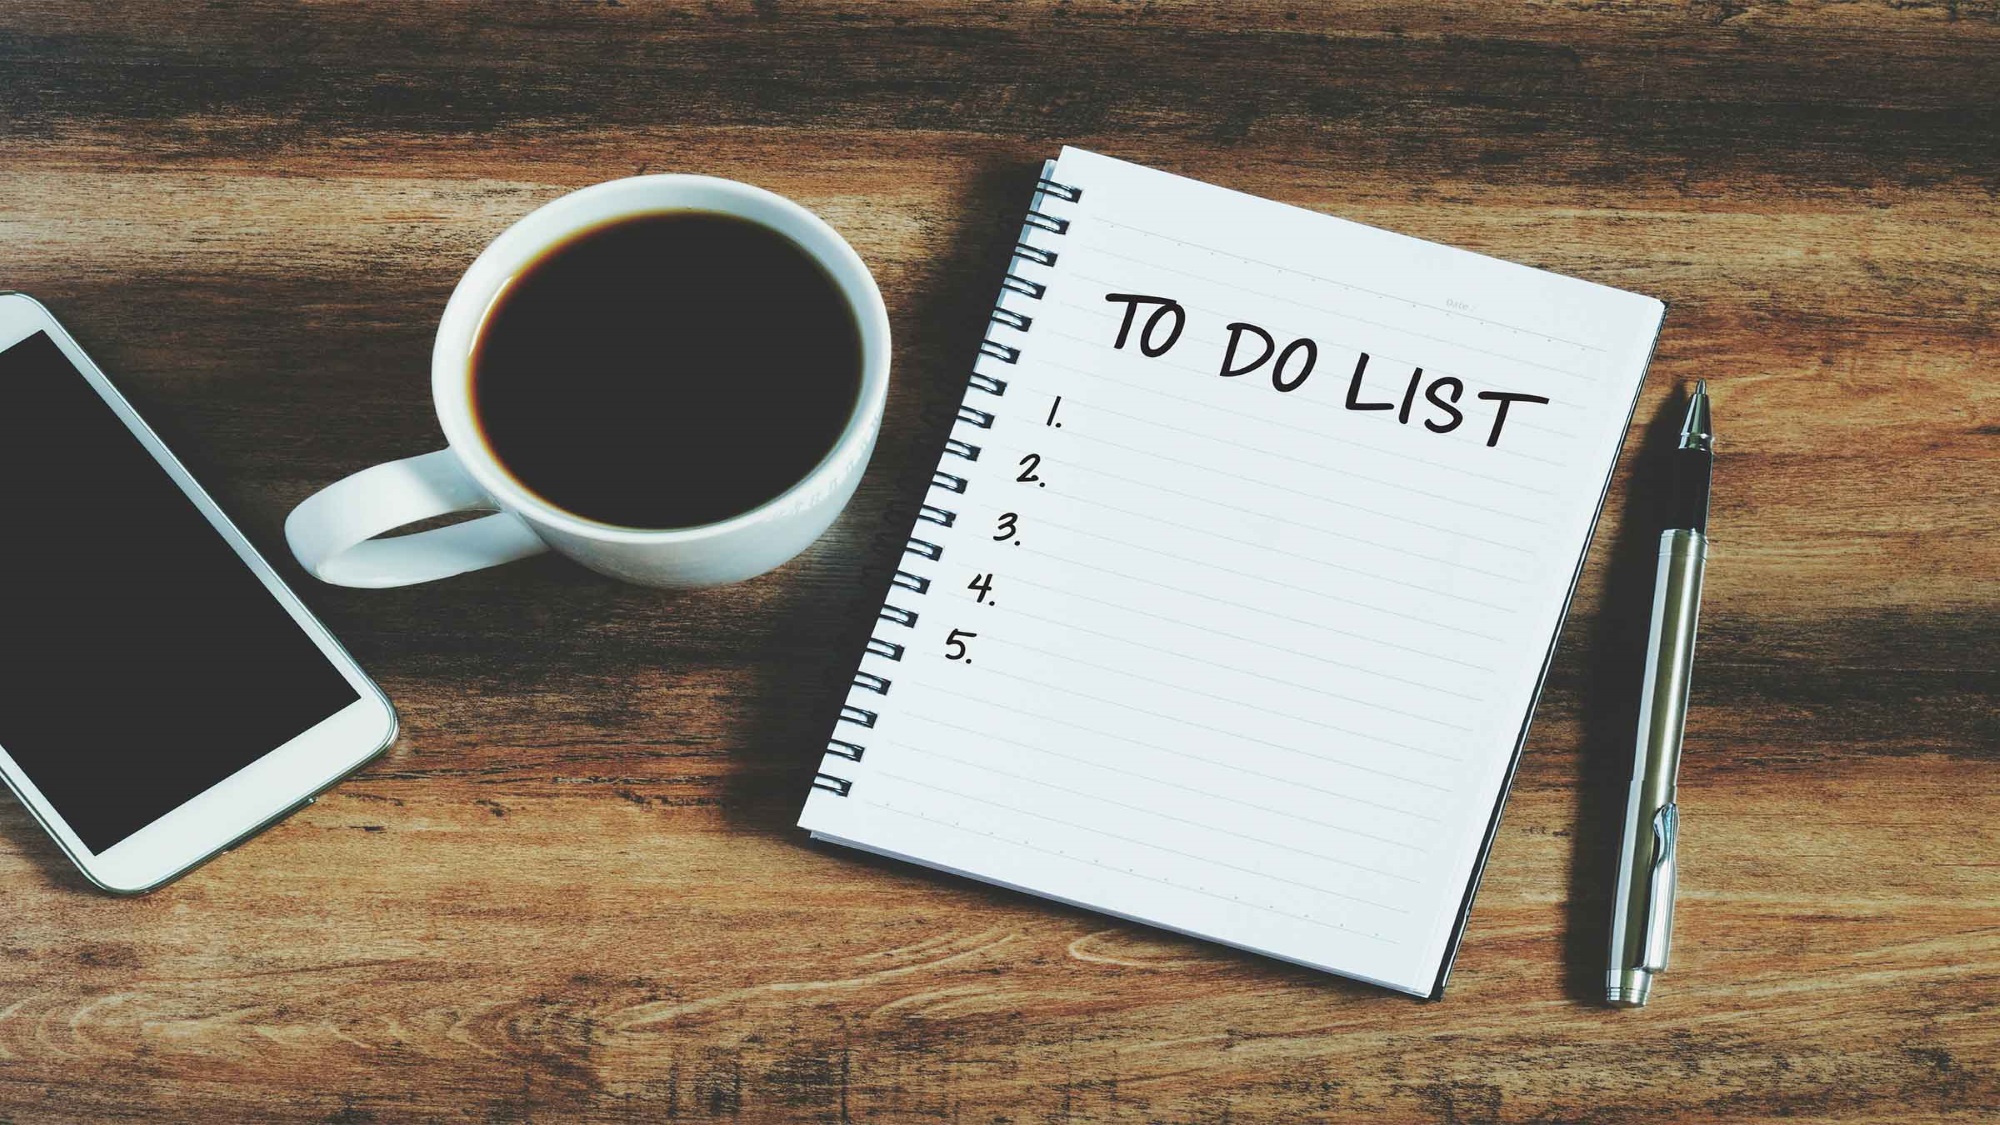 Date /
TO DO LIST
1.
2.
3.
4.
5.